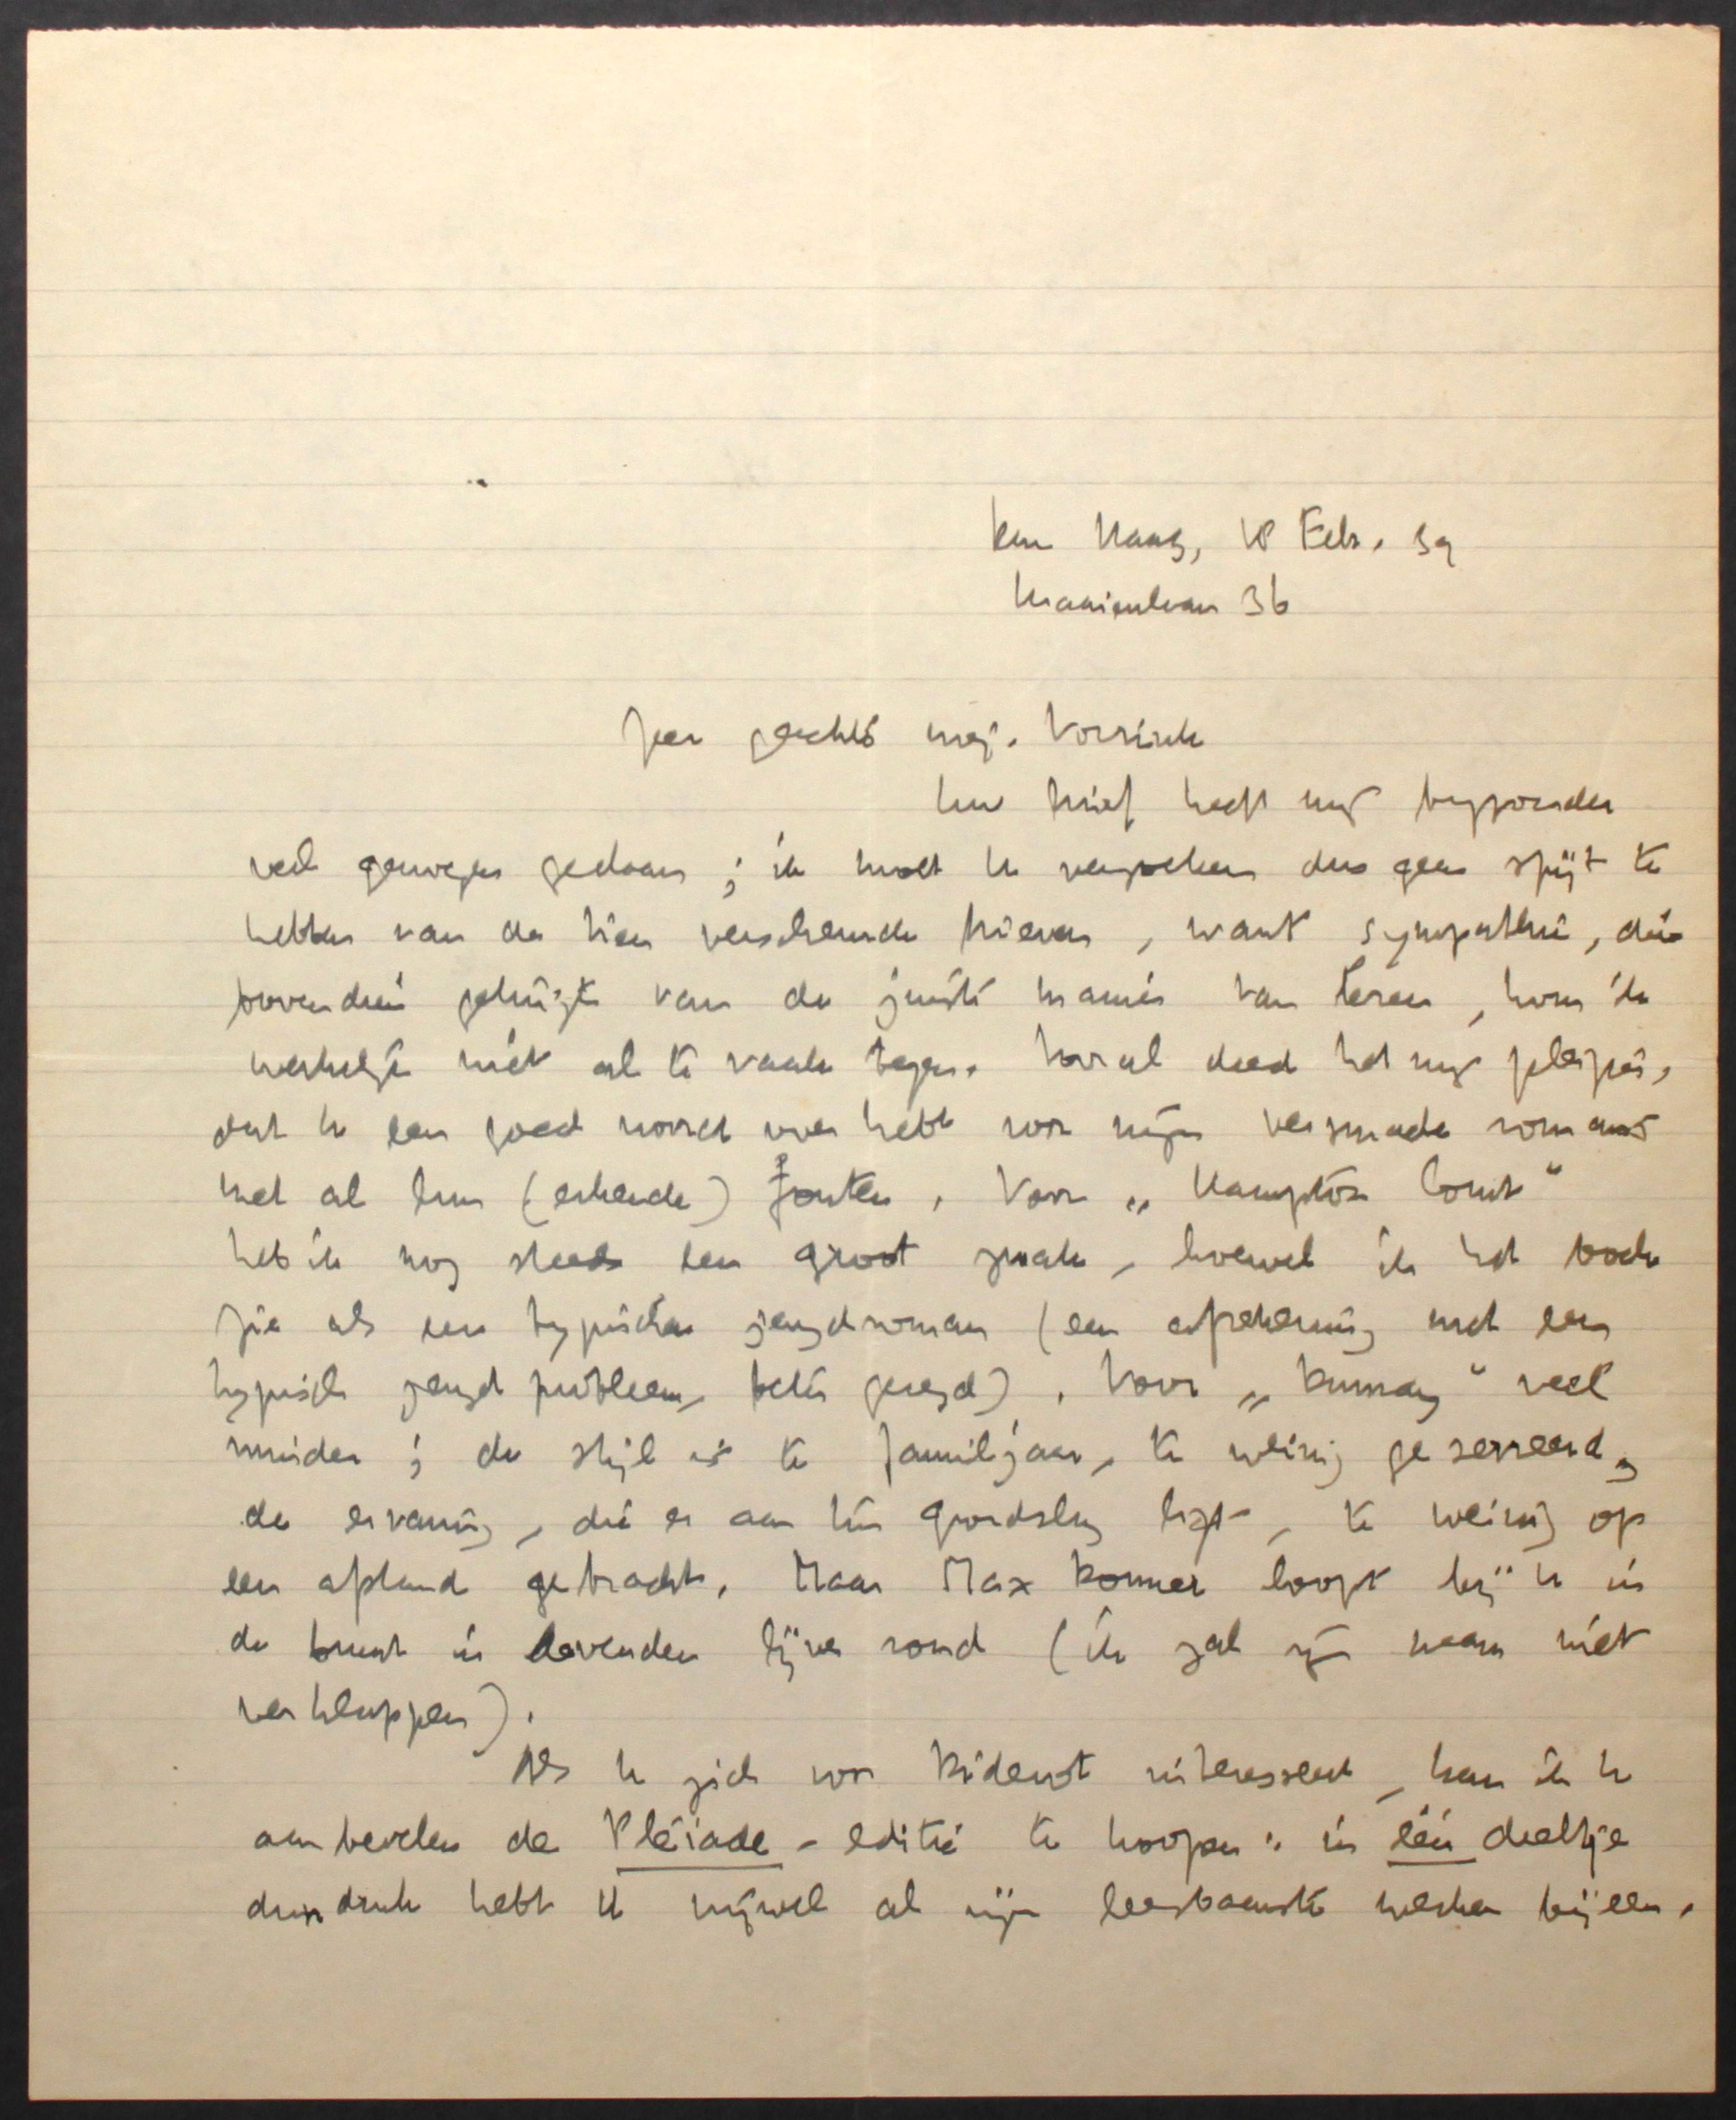 Den Haag, 18 Febr. 39
Kraaienlaan 36
Zeer geachte mej. Vorrink
Uw brief heeft mij bijzonder
veel genoegen gedaan; ik moet U verzoeken dus geen spijt te
hebben van de hier verschenen brieven, want sympathie, die
bovendien getuigt van de juiste manier van lezen, kom ik
werkelijk niet al te vaak tegen. Vooral deed het mij plezier,
dat U een goed woord over hebt voor mijn versmade romans
met al hun (erkende) fouten. Voor „Hampton Court"
heb ik nog steeds een groot zwak, hoewel ik het boek
zie als een typischen jeugdroman (een afrekening met een
typisch jeugdprobleem, beter gezegd). Voor „Dumay" veel
minder; de stijl is te familjaar, te weinig geserreerd,
de ervaring, die er aan ten grondslag ligt, te weinig op
een afstand gebracht. Maar Max Donner loopt bij U in
de buurt in levenden lijve rond (ik zal zijn naam niet
verklappen).
Als U zich voor Diderot interesseert, kan ik U
aanbevelen de Pléiade-editie te koopen: in één deeltje
dundruk hebt U vrijwel al zijn leesbaarste werken bijeen.